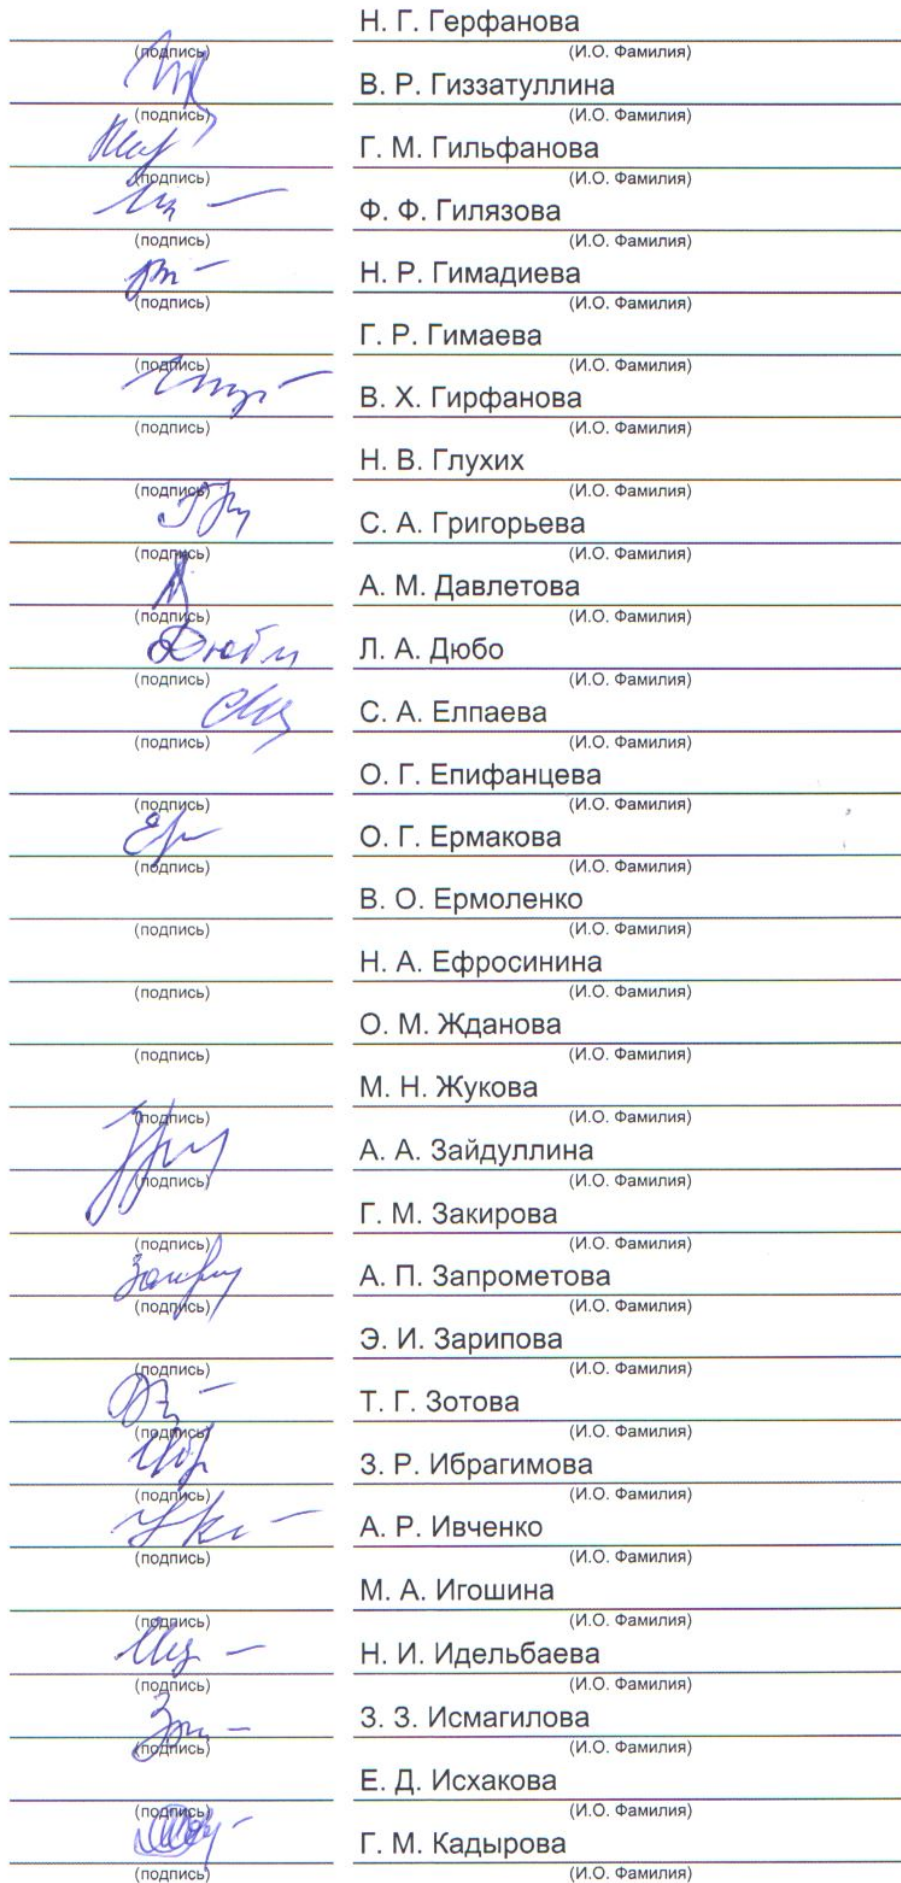 Н. Г. Герфанова
(подпись) (И.О. Фамилия)
В. Р. Гиззатуллина
(подпись) (И.О. Фамилия)
Г. М. Гильфанова
(подпись) (И.О. Фамилия)
Ф. Ф. Гилязова
(подпись) (И.О. Фамилия)
Н. Р. Гимадиева
(подпись) (И.О. Фамилия)
Г. Р. Гимаева
(подпись) (И.О. Фамилия)
В. Х. Гирфанова
(подпись) (И.О. Фамилия)
Н. В. Глухих
(подпись) (И.О. Фамилия)
С. А. Григорьева
(подпись) (И.О. Фамилия)
А. М. Давлетова
(подпись) (И.О. Фамилия)
Л. А. Дюбо
(подпись) (И.О. Фамилия)
С. А. Елпаева
(подпись) (И.О. Фамилия)
О. Г. Епифанцева
(подпись) (И.О. Фамилия)
О. Г. Ермакова
(подпись) (И.О. Фамилия)
В. О. Ермоленко
(подпись) (И.О. Фамилия)
Н. А. Ефросинина
(подпись) (И.О. Фамилия)
О. М. Жданова
(подпись) (И.О. Фамилия)
М. Н. Жукова
(подпись) (И.О. Фамилия)
А. А. Зайдуллина
(подпись) (И.О. Фамилия)
Г. М. Закирова
(подпись) (И.О. Фамилия)
А. П. Запрометова
(подпись) (И.О. Фамилия)
Э. И. Зарипова
(подпись) (И.О. Фамилия)
Т. Г. Зотова
(подпись) (И.О. Фамилия)
З. Р. Ибрагимова
(подпись) (И.О. Фамилия)
А. Р. Ивченко
(подпись) (И.О. Фамилия)
М. А. Игошина
(подпись) (И.О. Фамилия)
Н. И. Идельбаева
(подпись) (И.О. Фамилия)
З. З. Исмагилова
(подпись) (И.О. Фамилия)
Е. Д. Исхакова
(подпись) (И.О. Фамилия)
Г. М. Кадырова
(подпись) (И.О. Фамилия)